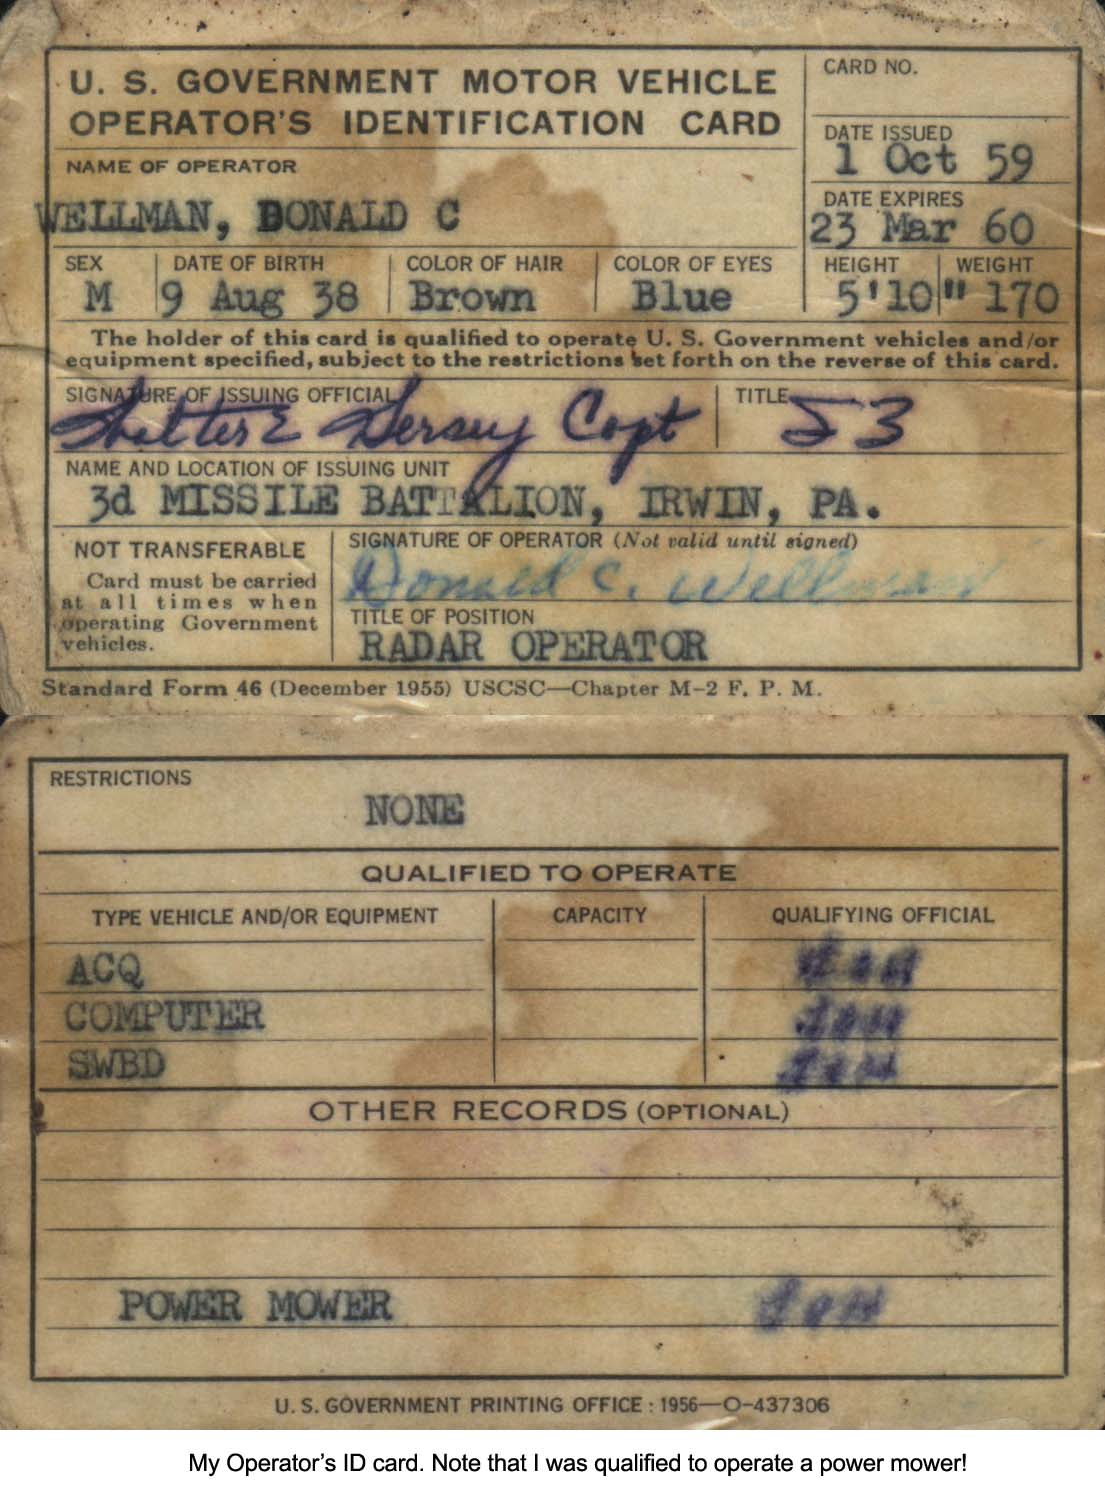 U. S. GOVERNMENT MOTOR VEHICLE
OPERATOR'S IDENTIFICATION CARD
CARD NO.
DATE ISSUED
1 Oct 59
NAME OF OPERATOR
WELLMAN, DONALD C
DATE EXPIRES
23 Mar 60
SEX DATE OF BIRTH COLOR OF HAIR COLOR OF EYES HEIGHT WEIGHT
M 9 Aug 38 Brown Blue 5'10" 170
The holder of this card is qualified to operate U. S. Government vehicles and/or
equipment specified, subject to the restrictions set forth on the reverse of this card.
SIGNATURE OF ISSUING OFFICIAL TITLE
E Hersey Capt S3
NAME AND LOCATION OF ISSUING UNIT
3d MISSILE BATTALION, IRWIN, PA.
NOT TRANSFERABLE
Card must be carried
at all times when
operating Government
vehicles.
SIGNATURE OF OPERATOR (Not valid until signed)
Donald C. Wellman
TITLE OF POSITION
RADAR OPERATOR
Standard Form 46 (December 1955) USCSC—Chapter M-2 F. P. M.
RESTRICTIONS
NONE
QUALIFIED TO OPERATE
TYPE VEHICLE AND/OR EQUIPMENT CAPACITY QUALIFYING OFFICIAL
ACQ
COMPUTER
SWBD
OTHER RECORDS (OPTIONAL)
POWER MOWER
U. S. GOVERNMENT PRINTING OFFICE : 1956—O-437306
My Operator's ID card. Note that I was qualified to operate a power mower!